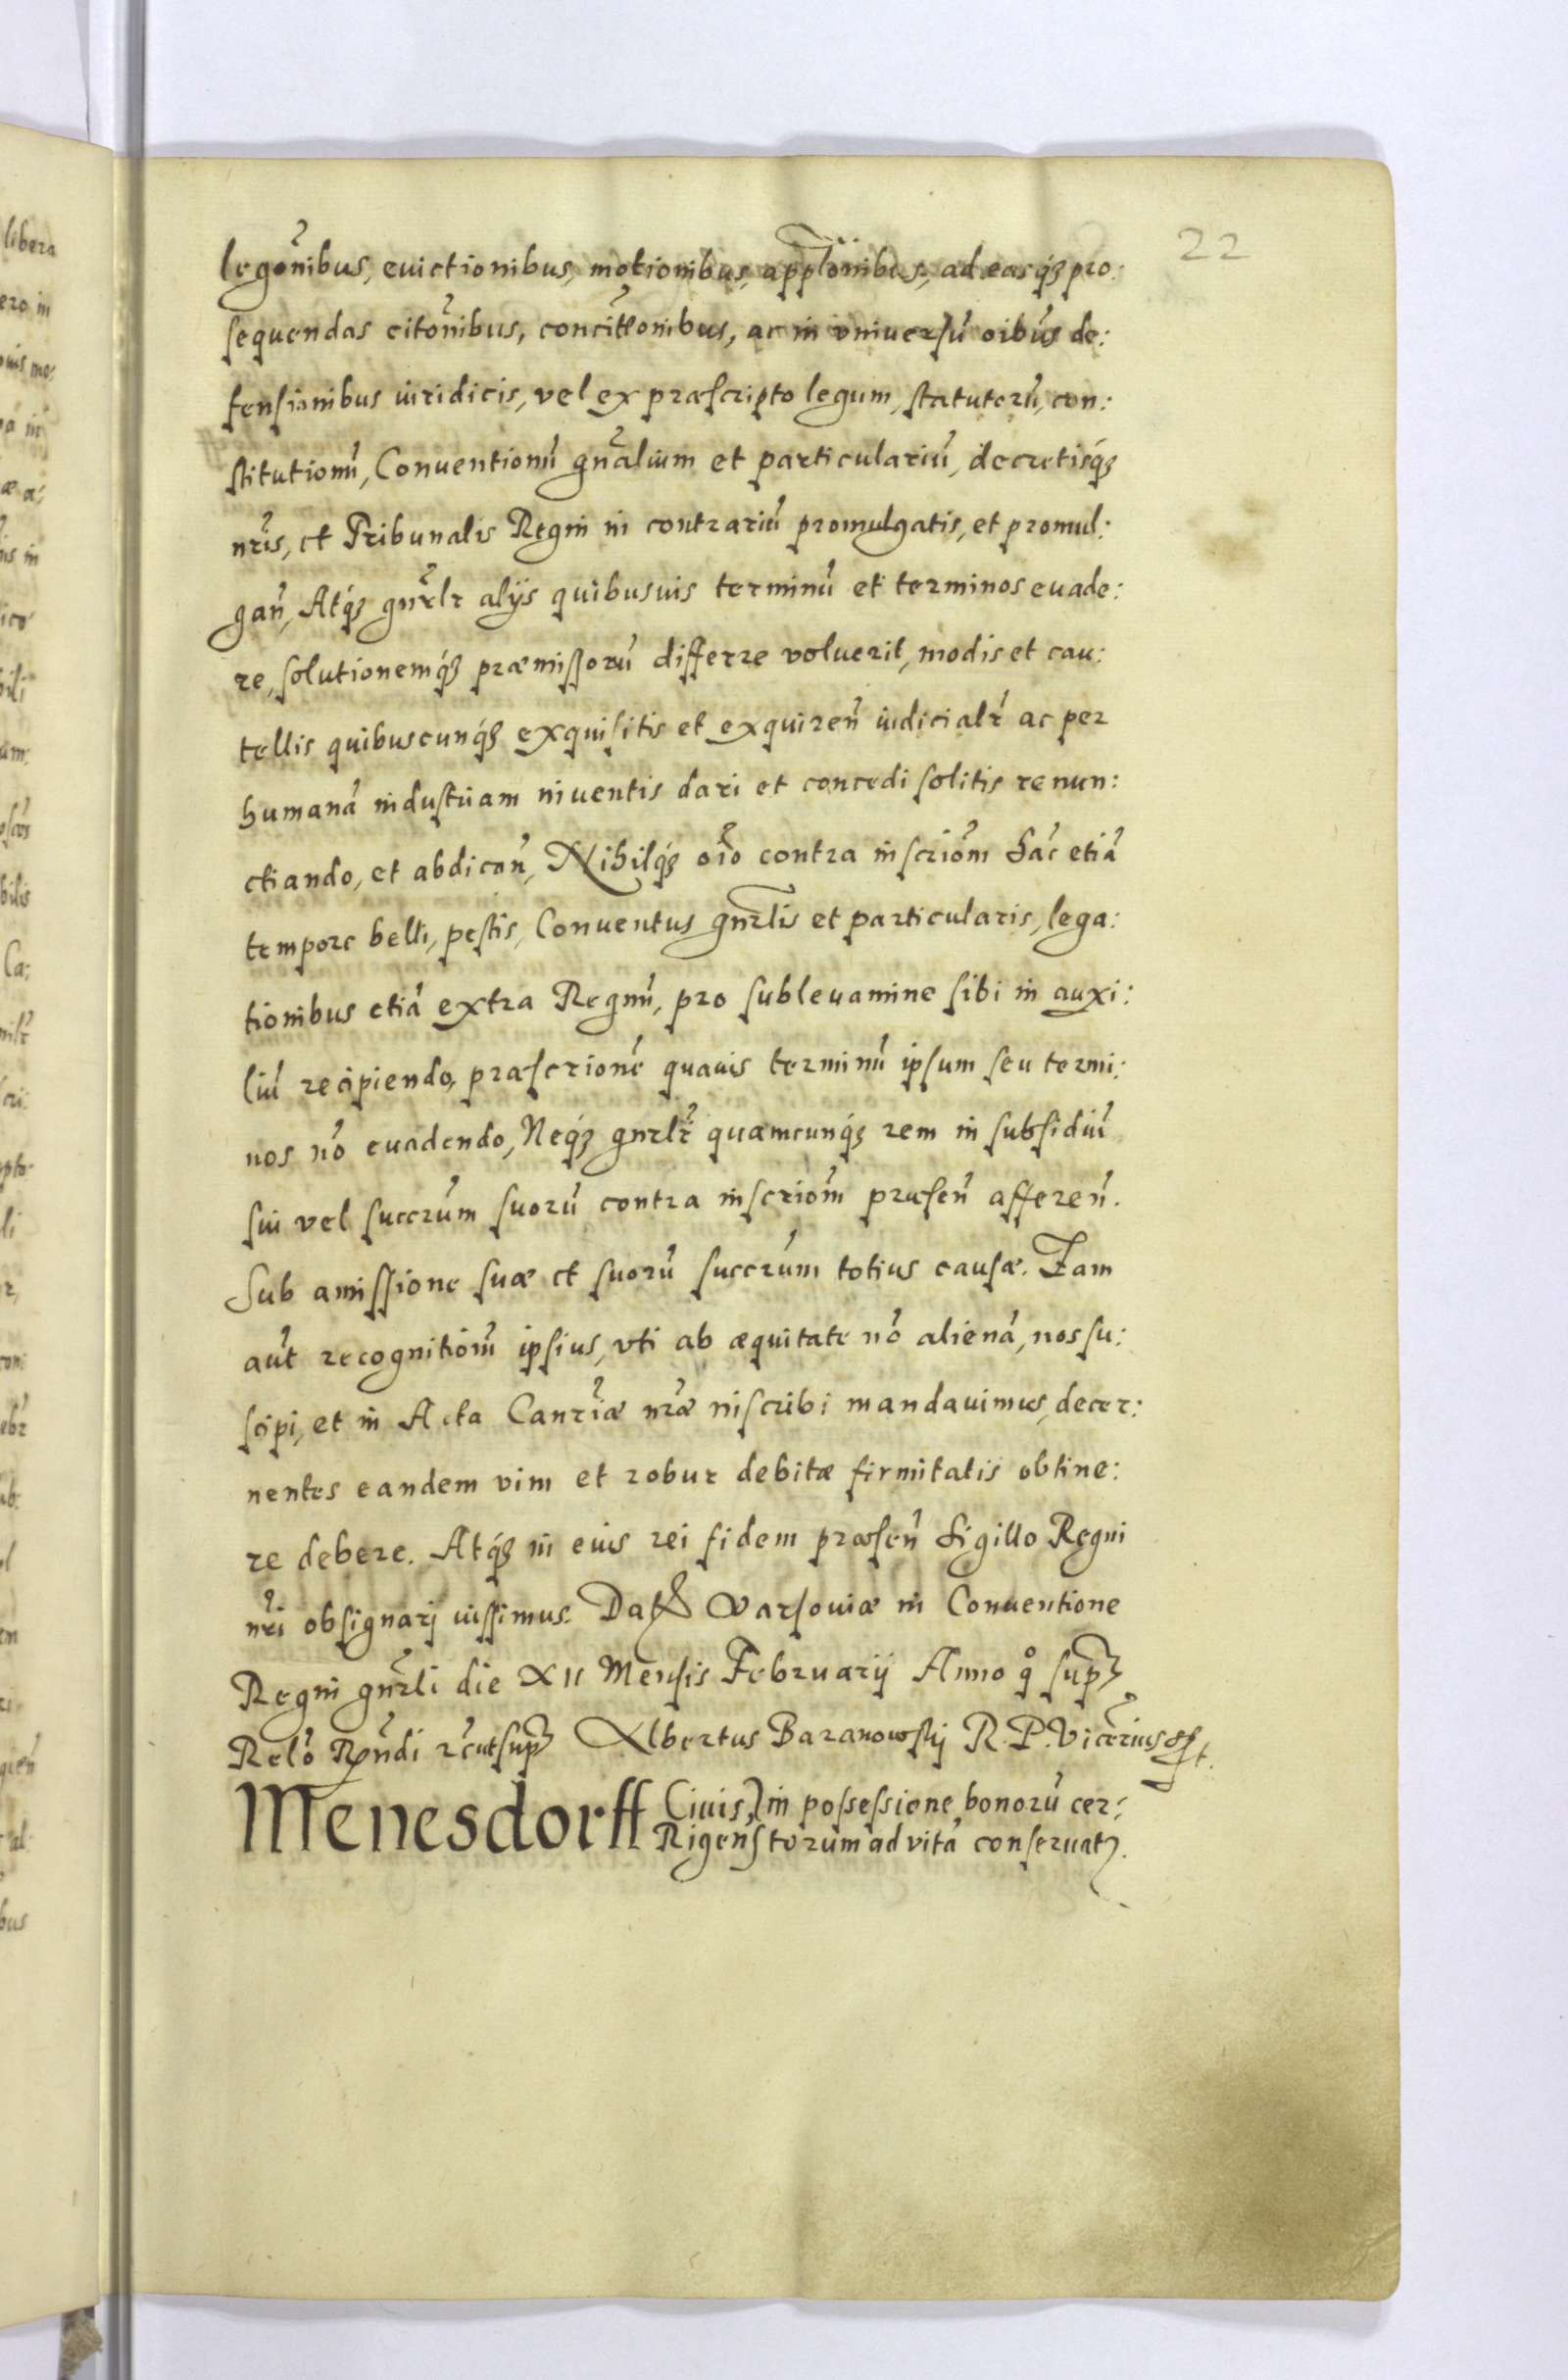 22
legõnibus, euictionibus, motionibus, applõnibus, ad easq́ꝫ pro:
sequendas citõnibus, concitõnibus, ac in vniuersũ oibus de:
fensionibus iuridicis, vel ex præscripto legum, statutorũ, con:
stitutionũ, Conuentionũ gnãlium et particulariũ, decretisq́ꝫ
nr̃is, et Tribunalis Regni in contrariũ promulgatis, et promul:
gañ, Atq́ꝫ gnr̃lr alijs quibusuis terminũ et terminos euade:
re, solutionemq́ꝫ præmissorũ differre voluerit, modis et cau:
tellis quibuscunq́ꝫ exquisitis et exquireñ iudicialr̃ ac per
humanã industriam inuentis dari et concedi solitis renun:
ctiando, et abdicañ, Nihilq́ꝫ oĩo contra inscriõm hãc etiã
tempore belli, pestis, Conuentus gnr̃lis et particularis, lega:
tionibus etiã extra Regnũ, pro subleuamine sibi in auxi:
liũ recipiendo, præscrionẽ quauis terminũ ipsum seu termi:
nos nõ euadendo, Neq́ꝫ gnrlr̃ quamcunq́ꝫ rem in subsidiũ
sui vel succrũm suorũ contra inscriõm præseñ affereñ.
Sub amissione suæ et suorũ succrũm totius causæ. Eam
aũt recognitiõm ipsius, vti ab æquitate nõ alienã, nos su:
scipi, et in Acta Canr̃iæ nr̃æ inscribi mandauimus, decer:
nentes eandem vim et robur debitæ firmitatis obtine:
re debere. Atq́ꝫ in eius rei fidem præseñ Sigillo Regni
nr̃i obsignarj iussimus. Dat Varsouiæ in Conuentione
Regni gnr̃li die XII Mensis Februarij Anno q̊ sup
Relõ Rñdi r̃cutsup Albertus Baranowskj R. P. Vicer̃ius sst.
Menesdorff Ciuis in possessione bonorũ cer:
Rigenś torum ad vitã conseruat.